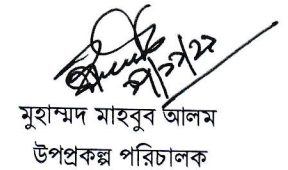 মুহাম্মদ মাহবুব আলম
উপপ্রকল্প পরিচালক